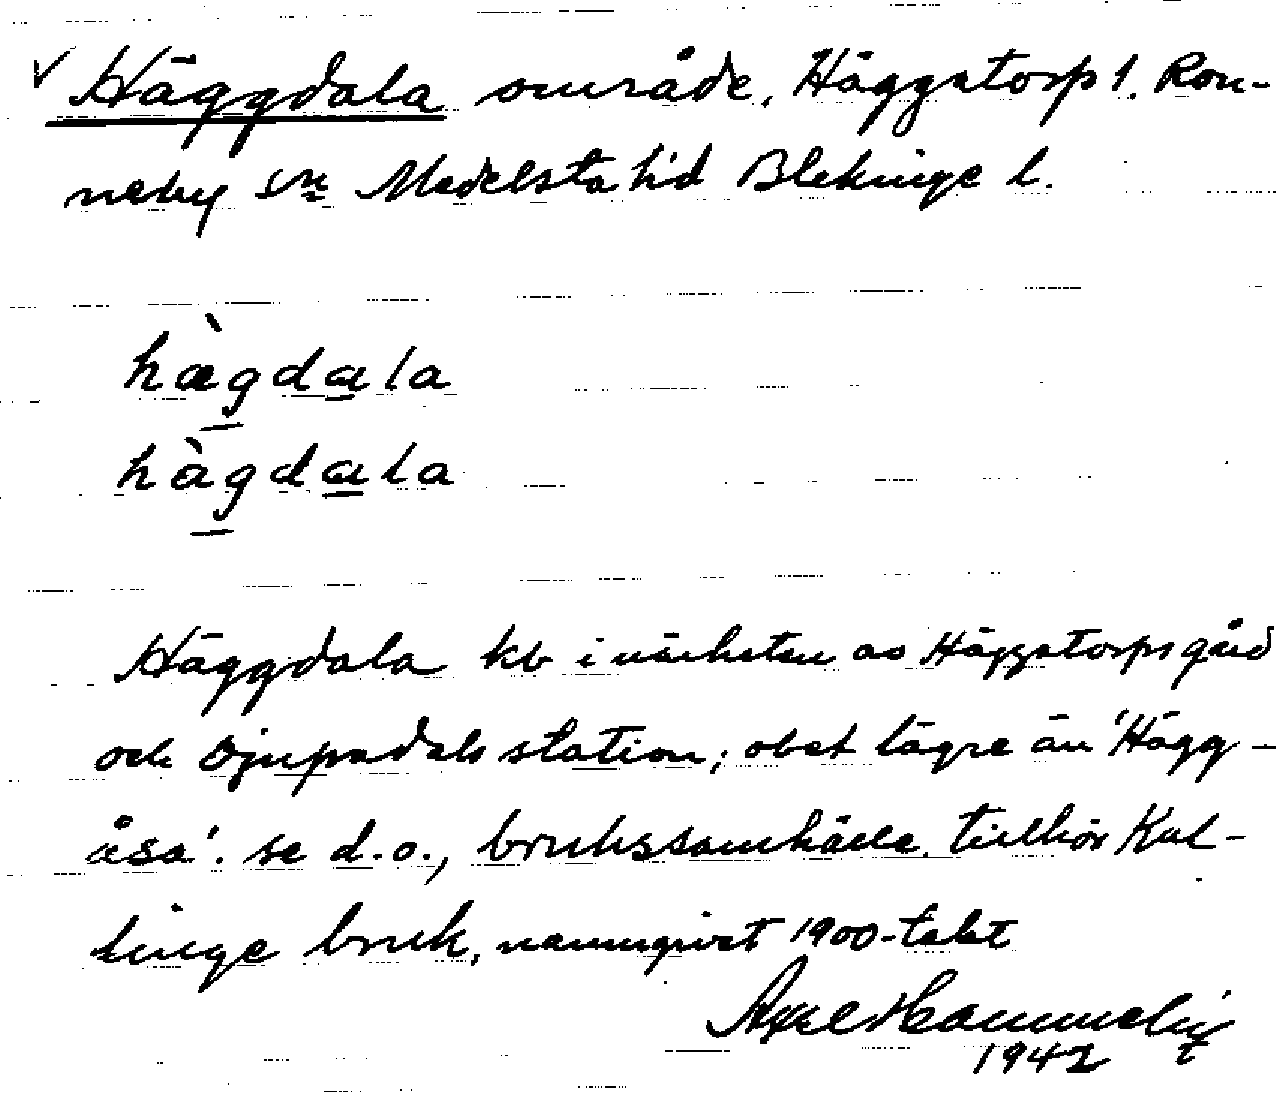 √ Häggdala område, Häggatorp 1. Ron-
neby sn Medelsta hd Blekinge l.
hæ̀gdala
hàgdala
Häggdala kb i närheten av Häggatorps gård
och Djupadals station; obet lägre än 'Hägg-
åsa'. se d.o., brukssamhälle. tillhör Kal-
linge bruk, namngivet 1900-talet
Axel
1942